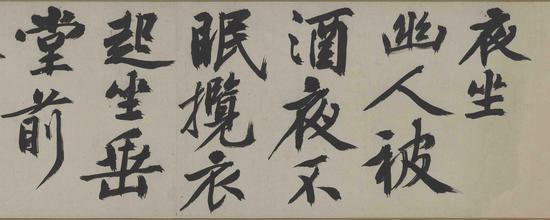 夜坐
幽人被
酒夜不
眠攬衣
起坐
堂前